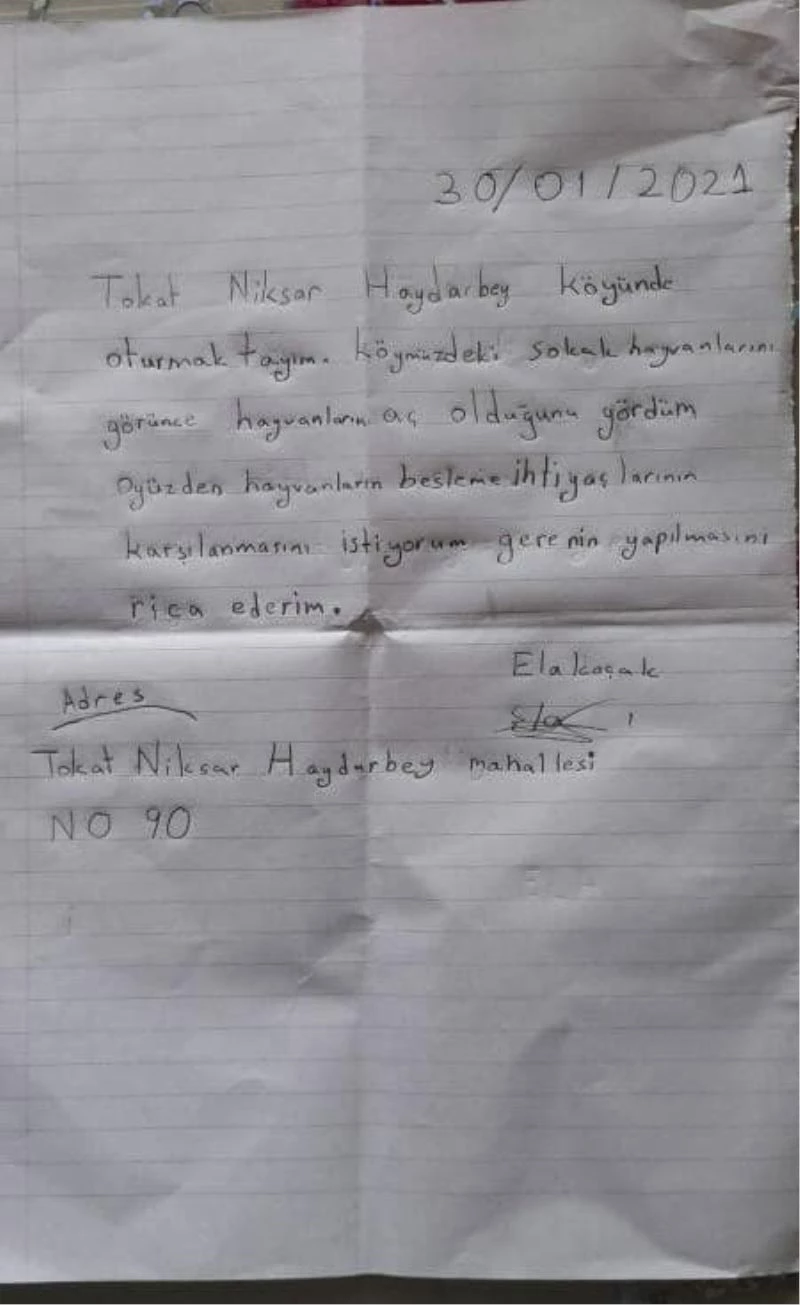 30/01/2021
Tokat Niksar Haydarbey köyünde
oturmak tayım. köymüzdeki sokak hayvanlarını
görünce hayvanların aç olduğunu gördüm
oyüzden hayvanların besleme ihtiyaç larının
karşılanmasını istiyorum gerenin yapılmasını
rica ederim.
Ela koçak
Adres
Ela
Tokat Niksar Haydarbey mahallesi
NO 90